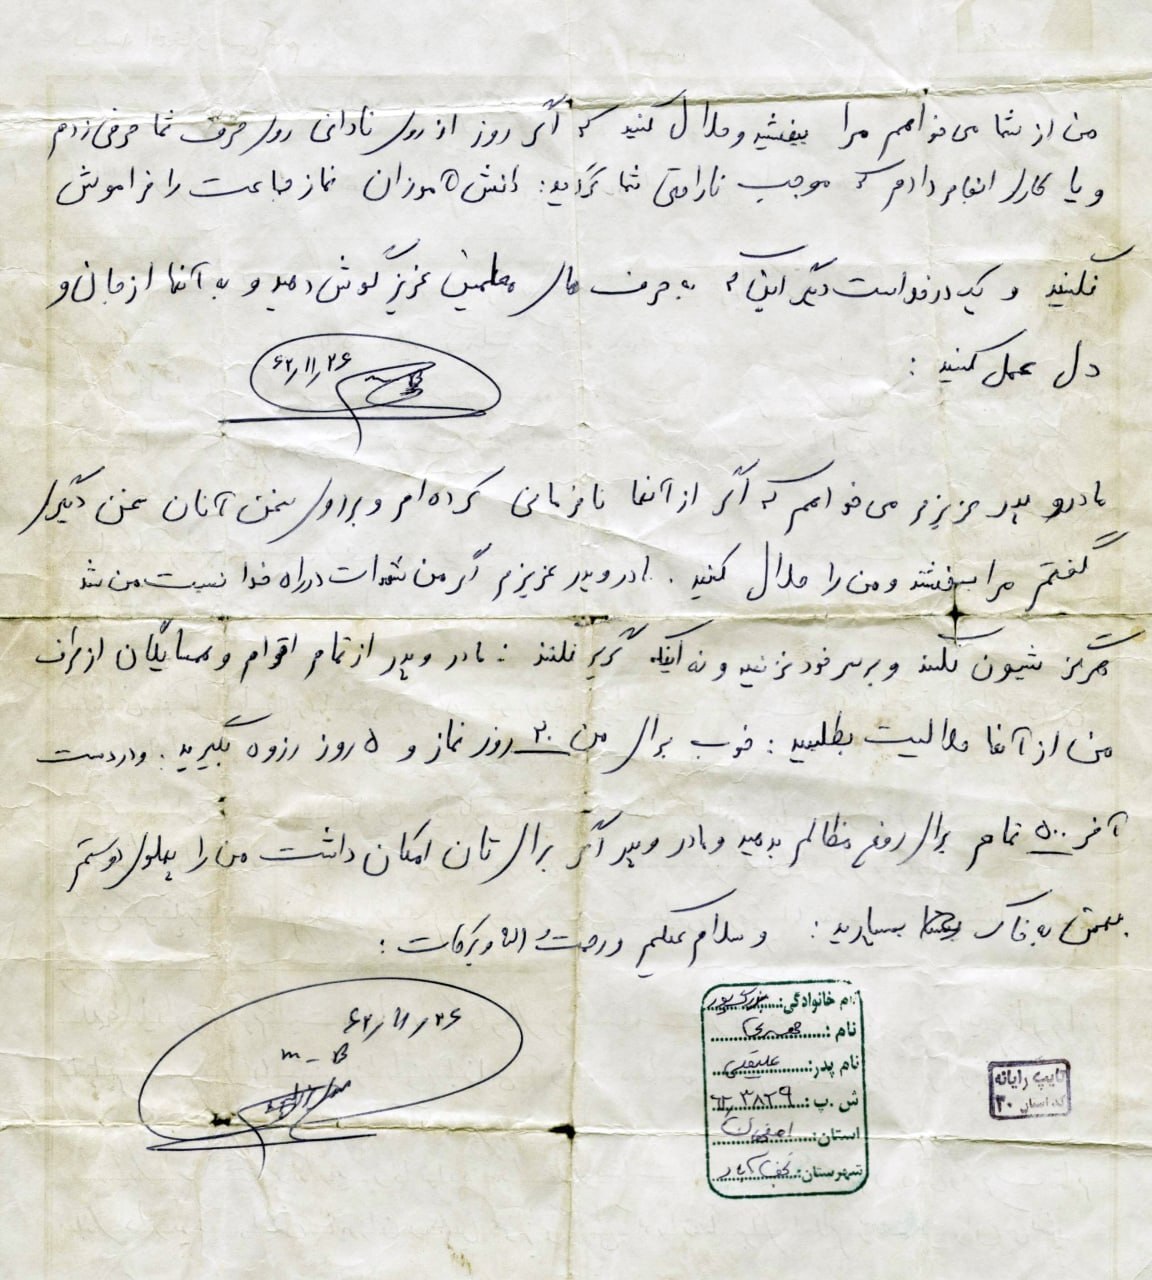 من از شما می خواهم مرا ببخشید و حلال کنید که اگر روز از روی نادانی روی حرف شما حرفی زدم
و یا کاری انجام دادم که موجب ناراحتی شما گردید: دانش آموزان نماز جماعت را فراموش
نکنید و یک درخواست دیگر اینکه به حرف های معلمین عزیز گوش دهید و به آنها از جان و
دل عمل کنید :
۶۲/۱۱/۲۶
مادر و پدر عزیزم می خواهم که اگر از آنها نافرمانی کرده ام و بر روی سخن آنان سخن دیگری
گفتم مرا ببخشند و من را حلال کنید . مادر و پدر عزیزم اگر من شهادت در راه خدا نصیب من شد
هرگز شیون نکنند و بر سر خود نزنید و نه اینکه گریه نکنند : مادر و پدر از تمام اقوام و همسایگان از طرف
من از آنها حلالیت بطلبید : خوب برای من ۲۰ روز نماز و ۵ روز روزه بگیرید : و در دست
آخر ۵۰۰ تمام برای روفع مظالم بدهید و مادر و پدر اگر برای تان امکان داشت من را پهلوی دوستم
بهمن به خاک بسپارید : و سلام علیکم و رحمت الله و برکات :
۶۲/۱۱/۲۶
m - B
نام خانوادگی: بزرگ پور
نام : مهدی
نام پدر: علیقلی
ش .پ : ۶۲۳۸۲۹
استان: اصفهان
شهرستان: نجف آباد
تایپ رایانه
کد استان ۳۰